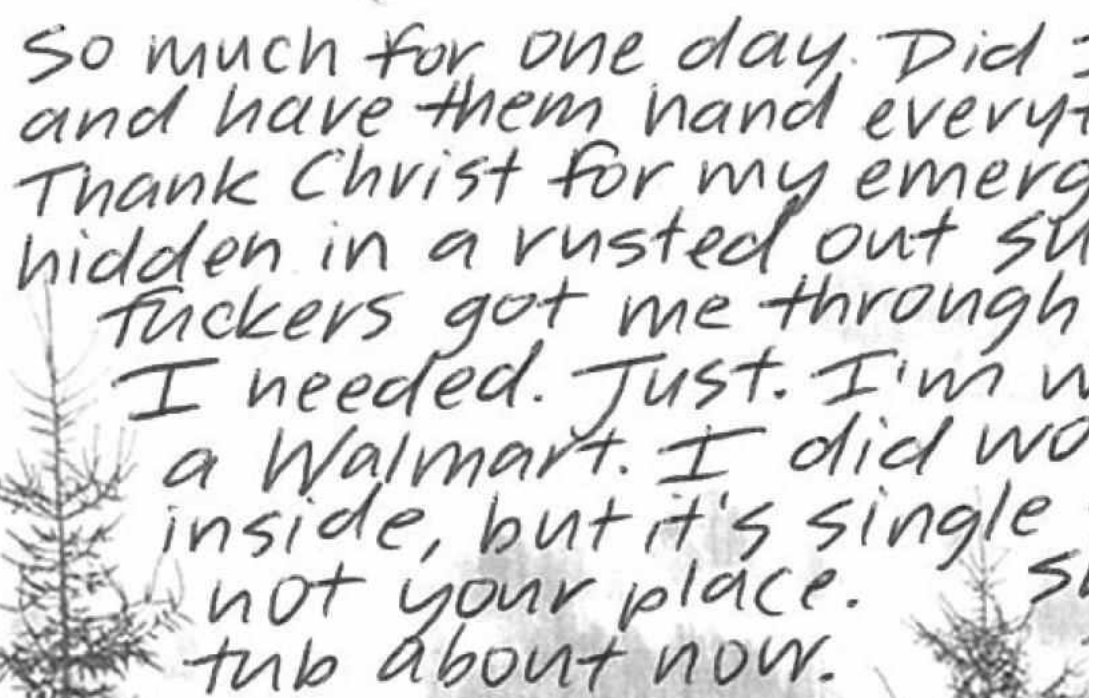 So much for one day. Did
and have them hand everyt
Thank Christ for my emerg
hidden in a rusted out su
fuckers got me through
I needed. Just. I'm w
a Walmart. I did wo
inside, but it's single
not your place. Sh
tub about now.